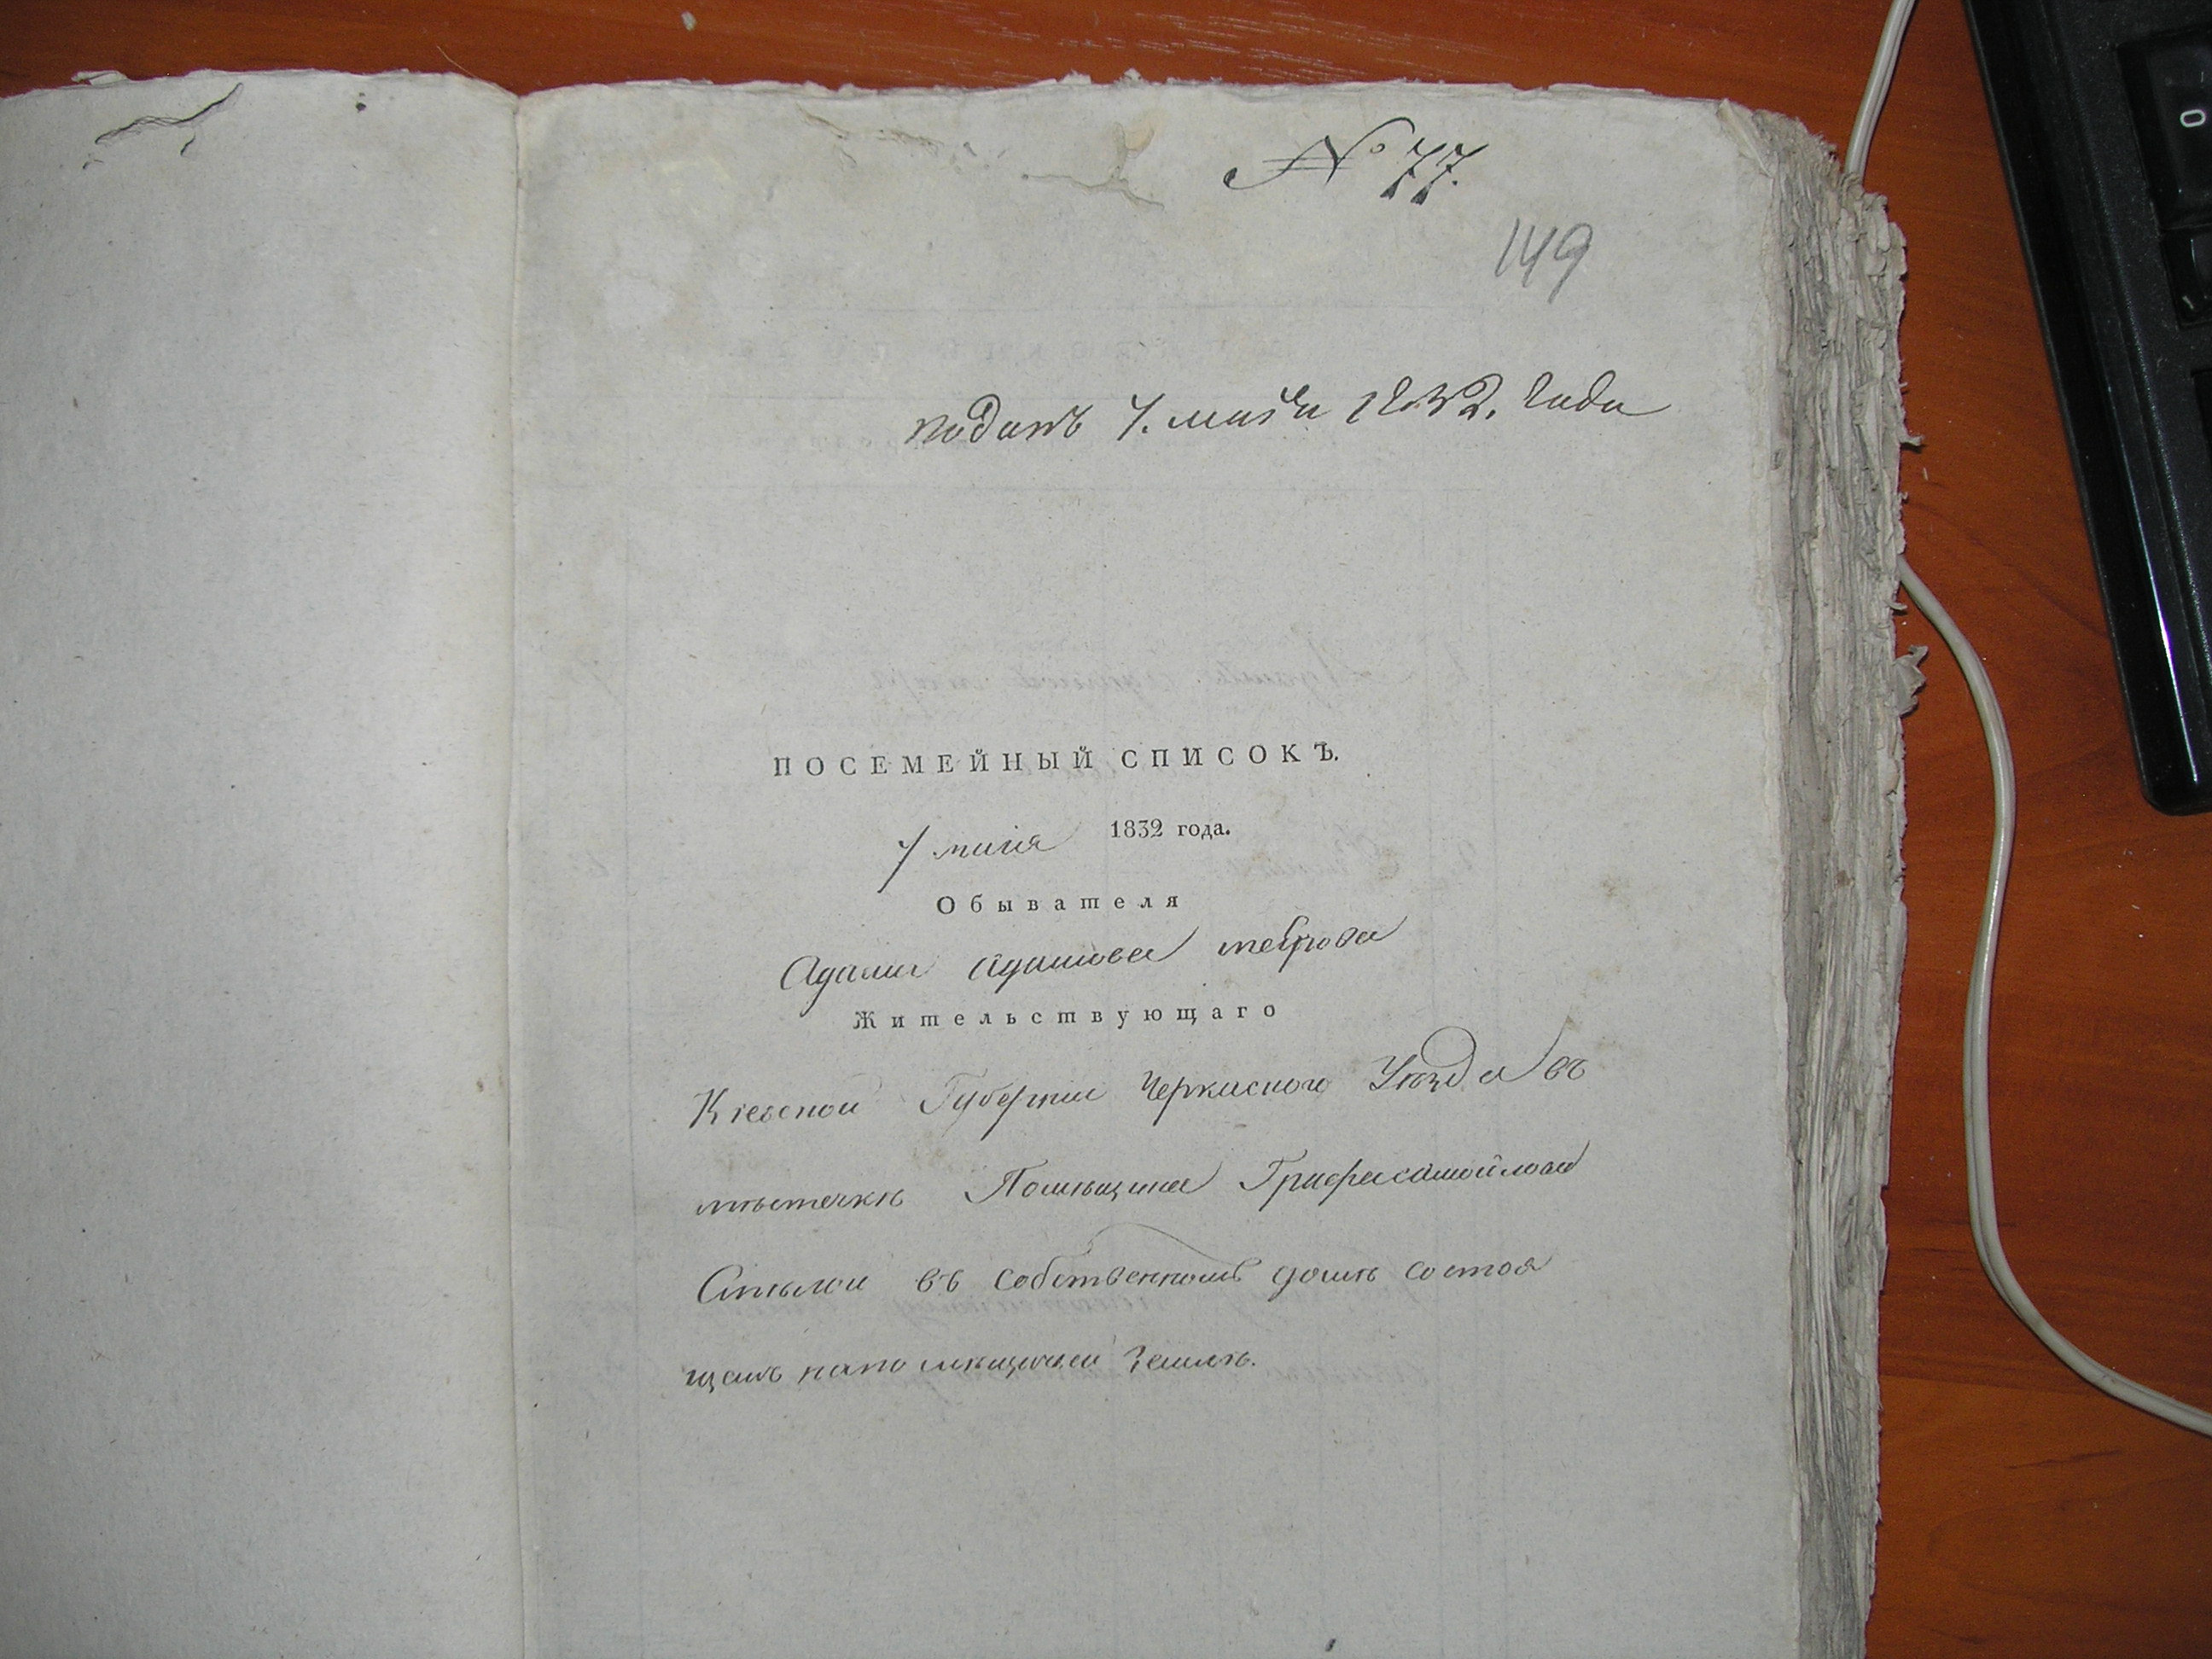 № 77.
149
поданъ 7. маія 1832. Года
ПОСЕМЕЙНЫЙ СПИСОКЪ.
7 маія 1832 года.
Обывателя
Адама Адамова
Жительствующаго
Кіевской Губерніи Черкаского Уѣзда въ
мѣстечкѣ Помѣщика Графа самойлова
Смѣлой въ собственномъ домѣ состоя
щемъ на помѣщичей Землѣ.
0